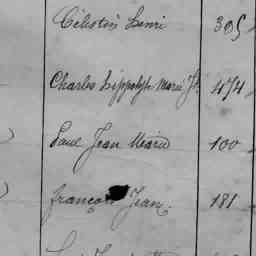 Célestin Henri 305
Charles Hippolyte Marie Jh 474
Paul Jean Marie 100
françois Jean. 181